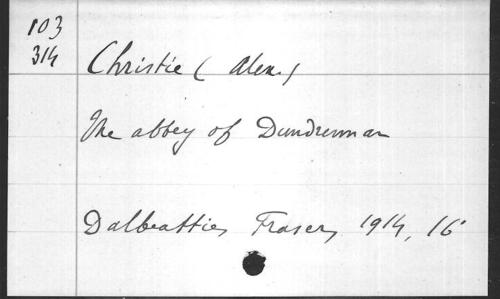 103
314
Christie (Alex.)
The abbey of Dundrennan
Dalbeattie, Fraser, 1914, 16°